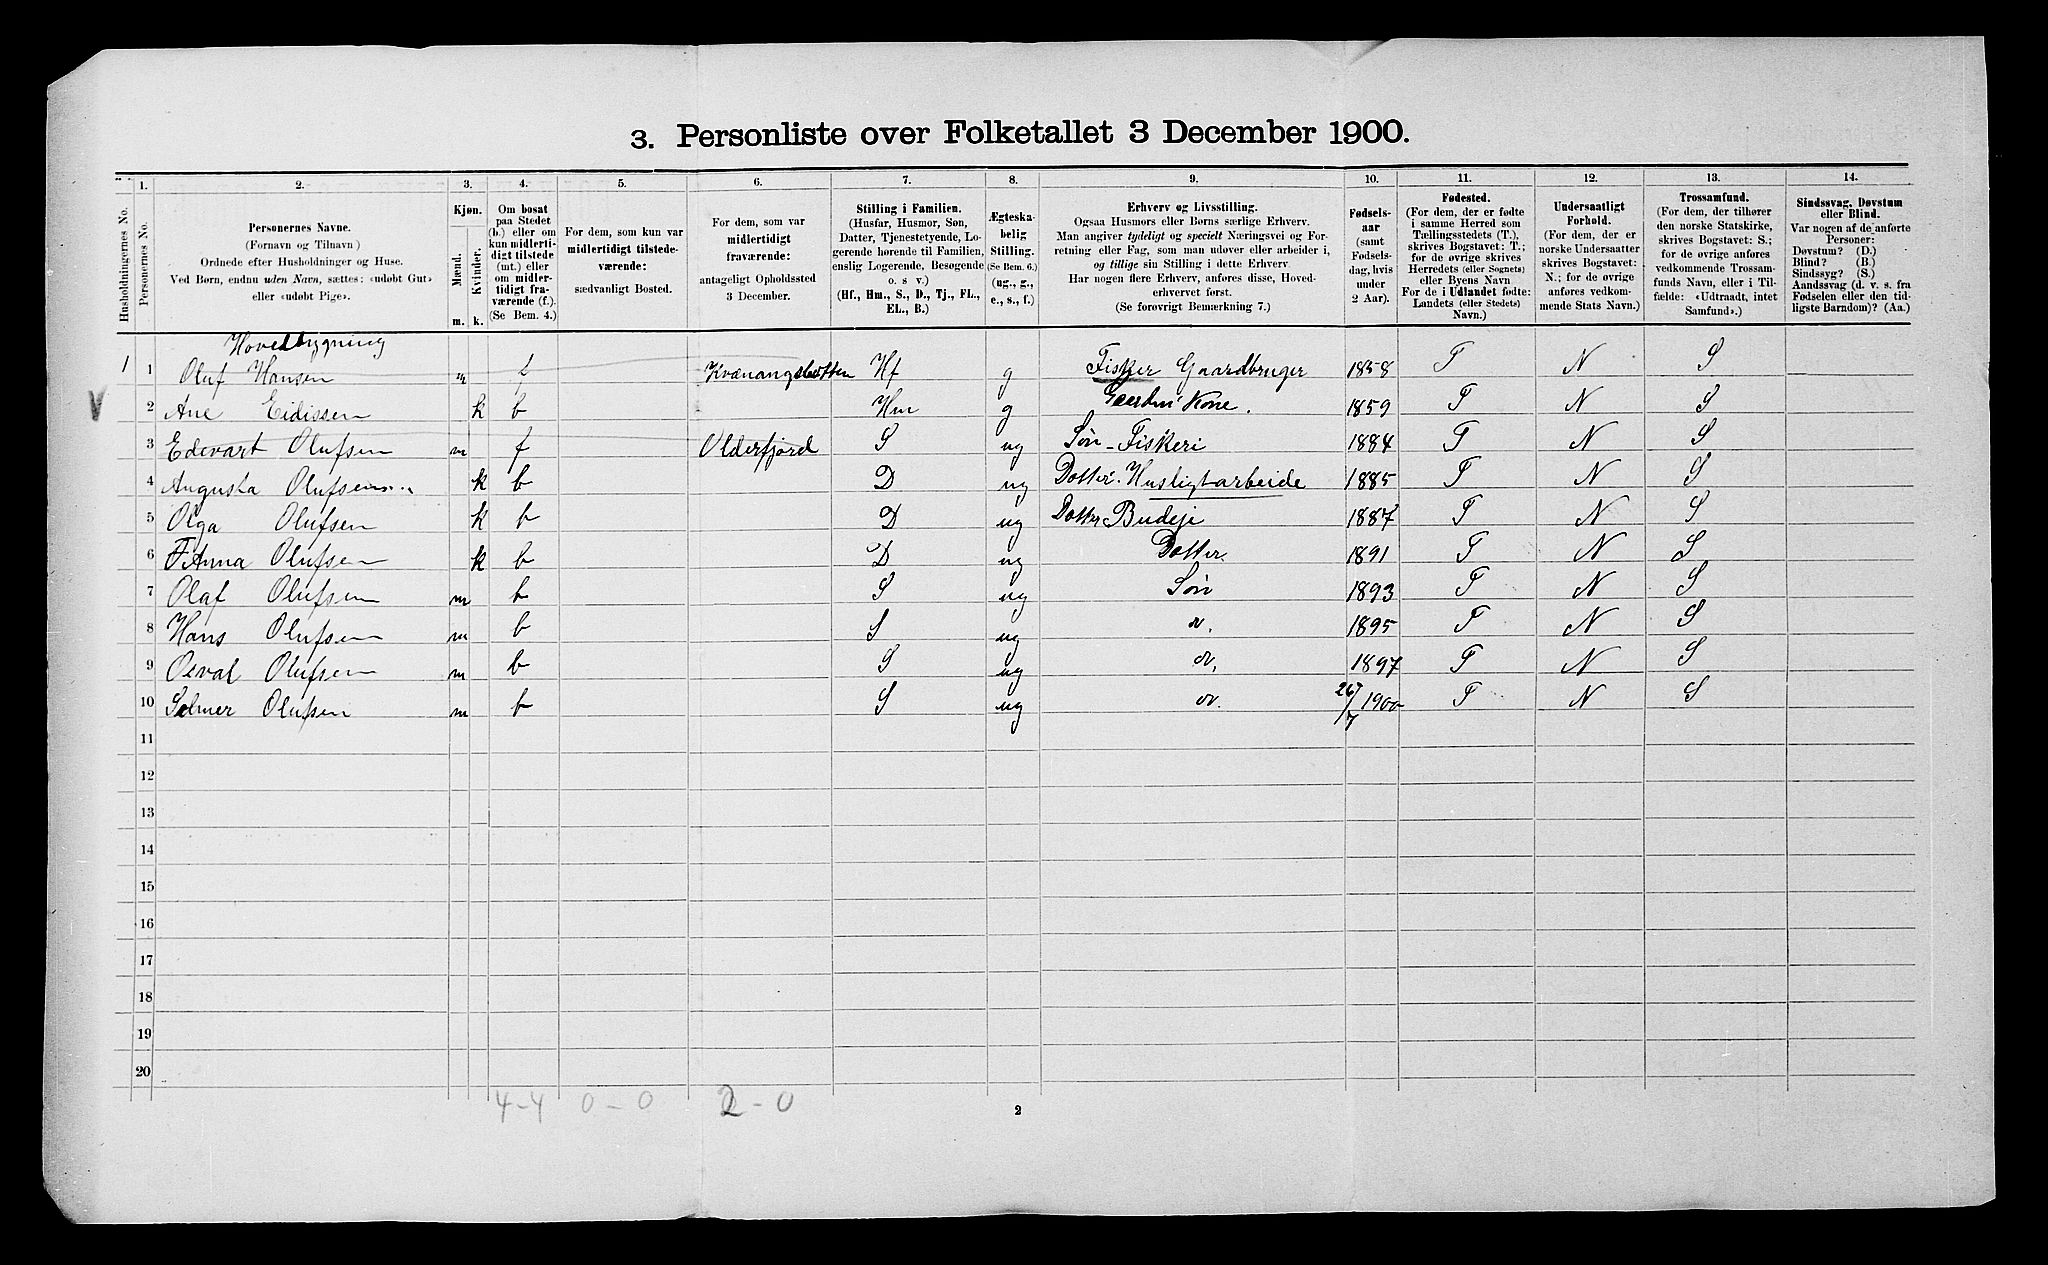 3. Personliste over Folketallet 3 December 1900.
Husholdningernes No.
1.
Personernes No.
2.
Personernes Navne.
(Fornavn og Tilnavn)
Ordnede efter Husholdninger og Huse.
Ved Børn, endnu uden Navn, sættes: «udøbt Gut»
eller «udøbt Pige».
3.
Kjøn.
Mænd.
Kvinder.
m. k.
4.
Om bosat
paa Stedet
(b.) eller om
kun midlerti-
digt tilstede
(mt.) eller
om midler-
tidigt fra-
værende (f.).
(Se Bem. 4.)
5.
For dem, som kun var
midlertidigt tilstede-
værende:
sædvanligt Bosted.
6.
For dem, som var
midlertidigt
fraværende:
antageligt Opholdssted
3 December.
7.
Stilling i Familien.
(Husfar, Husmor, Søn,
Datter, Tjenestetyende, Lo-
gerende hørende til Familien,
enslig Logerende, Besøgende
o. s. v.)
(Hf., Hm., S., D., Tj., FL.,
EL., B.)
8.
Ægteska-
belig
Stilling.
(Se Bem. 6.)
(ug., g.,
e., s., f.)
9.
Erhverv og Livsstilling.
Ogsaa Husmors eller Børns særlige Erhverv.
Man angiver tydeligt og specielt Næringsvei og For-
retning eller Fag, som man udøver eller arbeider i,
og tillige sin Stilling i dette Erhverv.
Har nogen flere Erhverv, anføres disse, Hoved-
erhvervet først.
(Se forøvrigt Bemærkning 7.)
10.
Fødsels-
aar
(samt
Fødsels-
dag, hvis
under
2 Aar).
11.
Fødested.
(For dem, der er fødte
i samme Herred som
Tællingsstedets (T.),
skrives Bogstavet: T.;
for de øvrige skrives
Herredets (eller Sognets)
eller Byens Navn
For de i Udlandet fødte:
Landets (eller Stedets)
Navn.)
12.
Undersaatligt
Forhold.
(For dem, der er
norske Undersaatter
skrives Bogstavet:
N.; for de øvrige
anføres vedkom-
mende Stats Navn.)
13.
Trossamfund.
(For dem, der tilhører
den norske Statskirke,
skrives Bogstavet: S.;
for de øvrige anføres
vedkommende Trossam-
funds Navn, eller i Til-
fælde: «Udtraadt, intet
Samfund».)
14.
Sindssvag, Døvstum
eller Blind.
Var nogen af de anførte
Personer:
Døvstum? (D.)
Blind? (B.)
Sindssyg? (S.)
Aandssvag (d. v. s. fra
Fødselen eller den tid-
ligste Barndom)? (Aa.)
Hovedbygning
1 1 Oluf Hansen m f Kvænangsbotten Hf g Fisker Gaardbruger 1858 T N S
2 Ane Eidissen k b Hm g Kone. 1859 T N S
3 Edevart Olufsen m f Olderfjord S ug Søn - Fiskeri 1884 T N S
4 Augusta Olufsen k b D ug Datter. Husligtarbeide 1885 T N S
5 Olga Olufsen k b D ug Datter Budeje 1887 T N S
6 Anna Olufsen k b D ug Datter 1891 T N S
7 Olaf Olufsen m b S ug Søn 1893 T N S
8 Hans Olufsen m b S ug 1895 T N S
9 Osval Olufsen m b S ug 1897 T N S
10 Selmer Olufsen m b S ug 26/7 1900 T N S
11
12
13
14
15
16
17
18
19
20
4-4 0-0 2-0
2